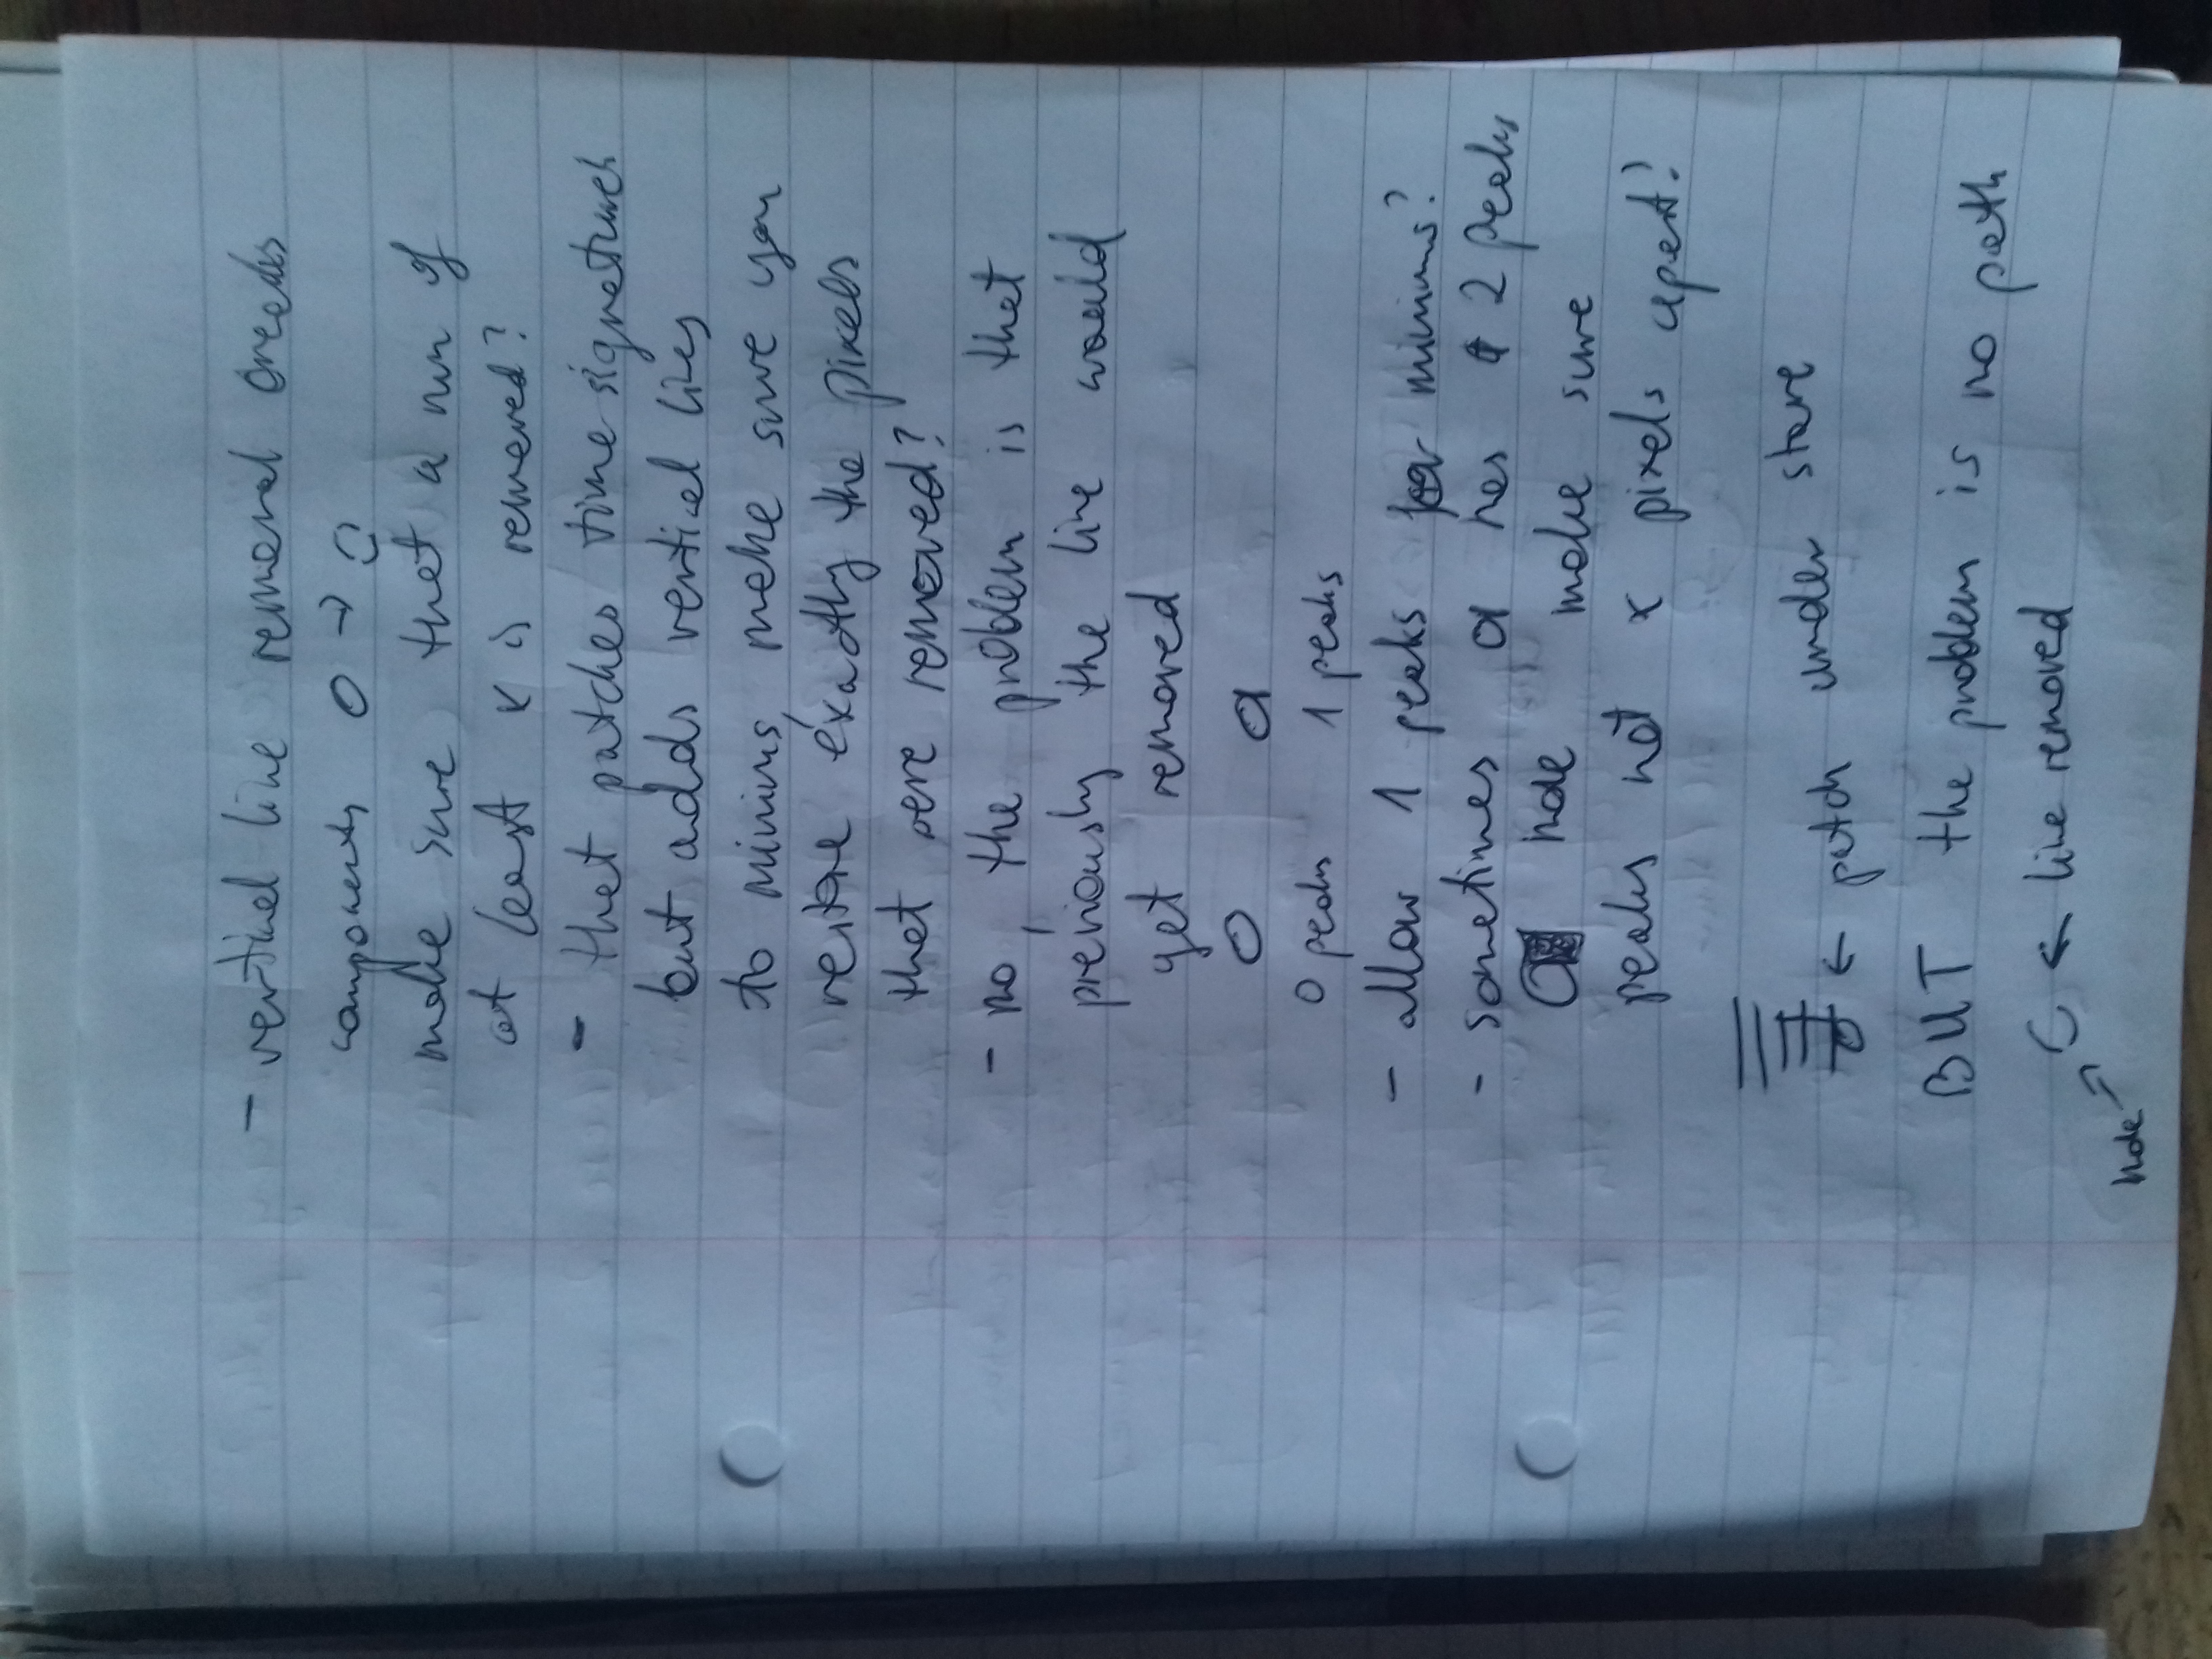 - vertical line removal breaks
components O → O
make sure that a run of
at least x is removed?
- that patches time signatures
but adds vertical lines
to minims, make sure you
restore exactly the pixels
that were removed?
- no, the problem is that
previously the line would
get removed
0 peaks 1 peaks
- allow 1 peaks for minims?
- sometimes has 2 peaks
hole make sure
peaks not x pixels apart?
← patch under stave
BUT the problem is no path
← line removed
hole →